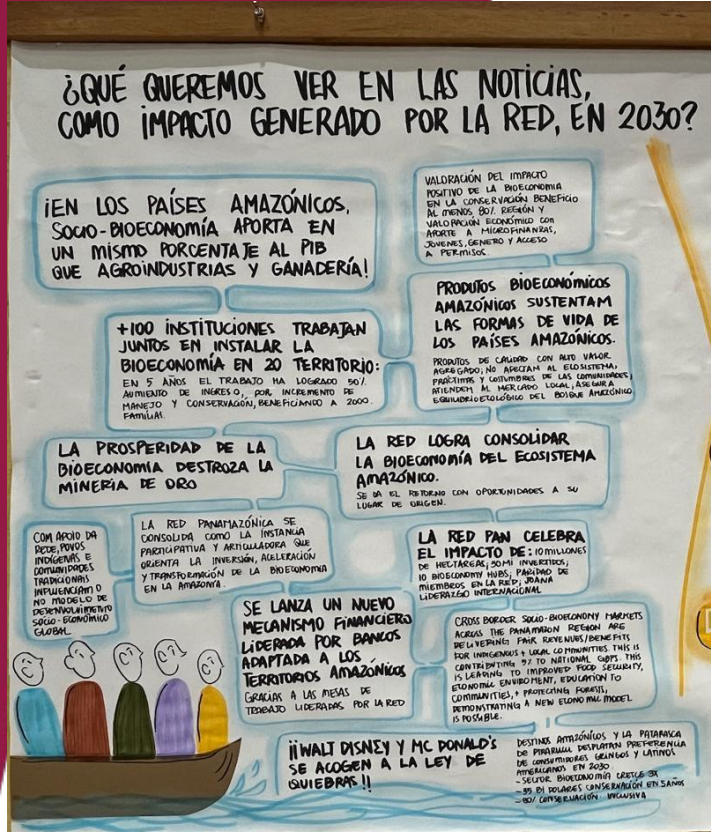 ¿QUÉ QUEREMOS VER EN LAS NOTICIAS,
COMO IMPACTO GENERADO POR LA RED, EN 2030?
¡EN LOS PAÍSES AMAZÓNICOS,
SOCIO-BIOECONOMÍA APORTA EN
UN MISMO PORCENTAJE AL PIB
QUE AGROINDUSTRIAS Y GANADERÍA!
VALORACIÓN DEL IMPACTO
POSITIVO DE LA BIOECONOMIA
EN LA CONSERVACIÓN BENEFICIO
AL MENOS, 80% REGIÓN Y
VALORACIÓN ECONÓMICO CON
APORTE A MICROFINANZAS,
JOVENES, GENERO Y ACCESO
A PERMISOS.
+100 INSTITUCIONES TRABAJAN
JUNTOS EN INSTALAR LA
BIOECONOMÍA EN 20 TERRITORIO:
EN 5 AÑOS EL TRABAJO HA LOGRADO 50%
AUMENTO DE INGRESO, POR INCREMENTO DE
MANEJO Y CONSERVACIÓN, BENEFICIANDO A 2000
FAMILIAS.
PRODUTOS BIOECONÓMICOS
AMAZÓNICOS SUSTENTAM
LAS FORMAS DE VIDA DE
LOS PAÍSES AMAZÓNICOS.
PRODUTOS DE CALIDAD CON ALTO VALOR
AGREGADO; NO AFECTAM AL ECOSISTEMA,
Y COSTUMBRES DE LAS COMUNIDADES,
ATIENDEM AL MERCADO LOCAL, ASEGURA
EQUILIBRIO ECOLÓGICO DEL BOSQUE AMAZÓNICO
LA PROSPERIDAD DE LA
BIOECONOMÍA DESTROZA LA
MINERÍA DE ORO
LA RED LOGRA CONSOLIDAR
LA BIOECONOMÍA DEL ECOSISTEMA
AMAZÓNICO.
SE DA EL RETORNO CON OPORTUNIDADES A SU
LUGAR DE ORIGEN.
COM APOIO DA
REDE, POVOS
INDÍGENAS E
COMUNIDADES
TRADICIONAIS
INFLUENCIAM O
NO MODELO DE
DESENVOLVIMENTO
SOCIO-ECONÔMICO
GLOBAL.
LA RED PANAMAZÓNICA SE
CONSOLIDA COMO LA INSTANCIA
PARTICIPATIVA Y ARTICULADORA QUE
ORIENTA LA INVERSIÓN, ACELERACIÓN
Y TRANSFORMACIÓN DE LA BIOECONOMIA
EN LA AMAZONIA.
LA RED PAN CELEBRA
EL IMPACTO DE: 10 MILLONES
DE HECTÁREAS; 50MI INVERTIDOS;
10 BIOECONOMY HUBS; PARIDAD DE
MIEMBROS EN LA RED; JOANA
LIDERAZGO INTERNACIONAL
SE LANZA UN NUEVO
MECANISMO FINANCIERO
LIDERADA POR BANCOS
ADAPTADA A LOS
TERRITORIOS AMAZÓNICOS
GRACIAS A LAS MESAS DE
TRABAJO LIDERADAS POR LA RED
CROSS BORDER SOCIO-BIOECONOMY MARKETS
ACROSS THE PANAMAZON REGION ARE
DELIVERING FAIR REVENUES/BENEFITS
FOR INDIGENOUS + LOCAL COMMUNITIES. THIS IS
CONTRIBUTING 5% TO NATIONAL GDPS. THIS
IS LEADING TO IMPROVED FOOD SECURITY,
ECONOMIC ENVIROMENT, EDUCATION TO
COMMUNITIES, + PROTECTING FORESTS,
DEMONSTRATING A NEW ECONOMIC MODEL
IS POSSIBLE.
¡¡WALT DISNEY Y MC DONALD'S
SE ACOGEN A LA LEY DE
QUIEBRAS!!
DESTINOS AMAZÓNICOS Y LA PATARASCA
DE PIRARUCU DESPLAZAN PREFERENCIA
DE CONSUMIDORES GRINGOS Y LATINOS
AMERICANOS EN 2030.
- SECTOR BIOECONOMÍA CRECE 3X
- 35 BI DOLARES CONSERVACIÓN EN 5 AÑOS
- 80% CONSERVACIÓN INCLUSIVA